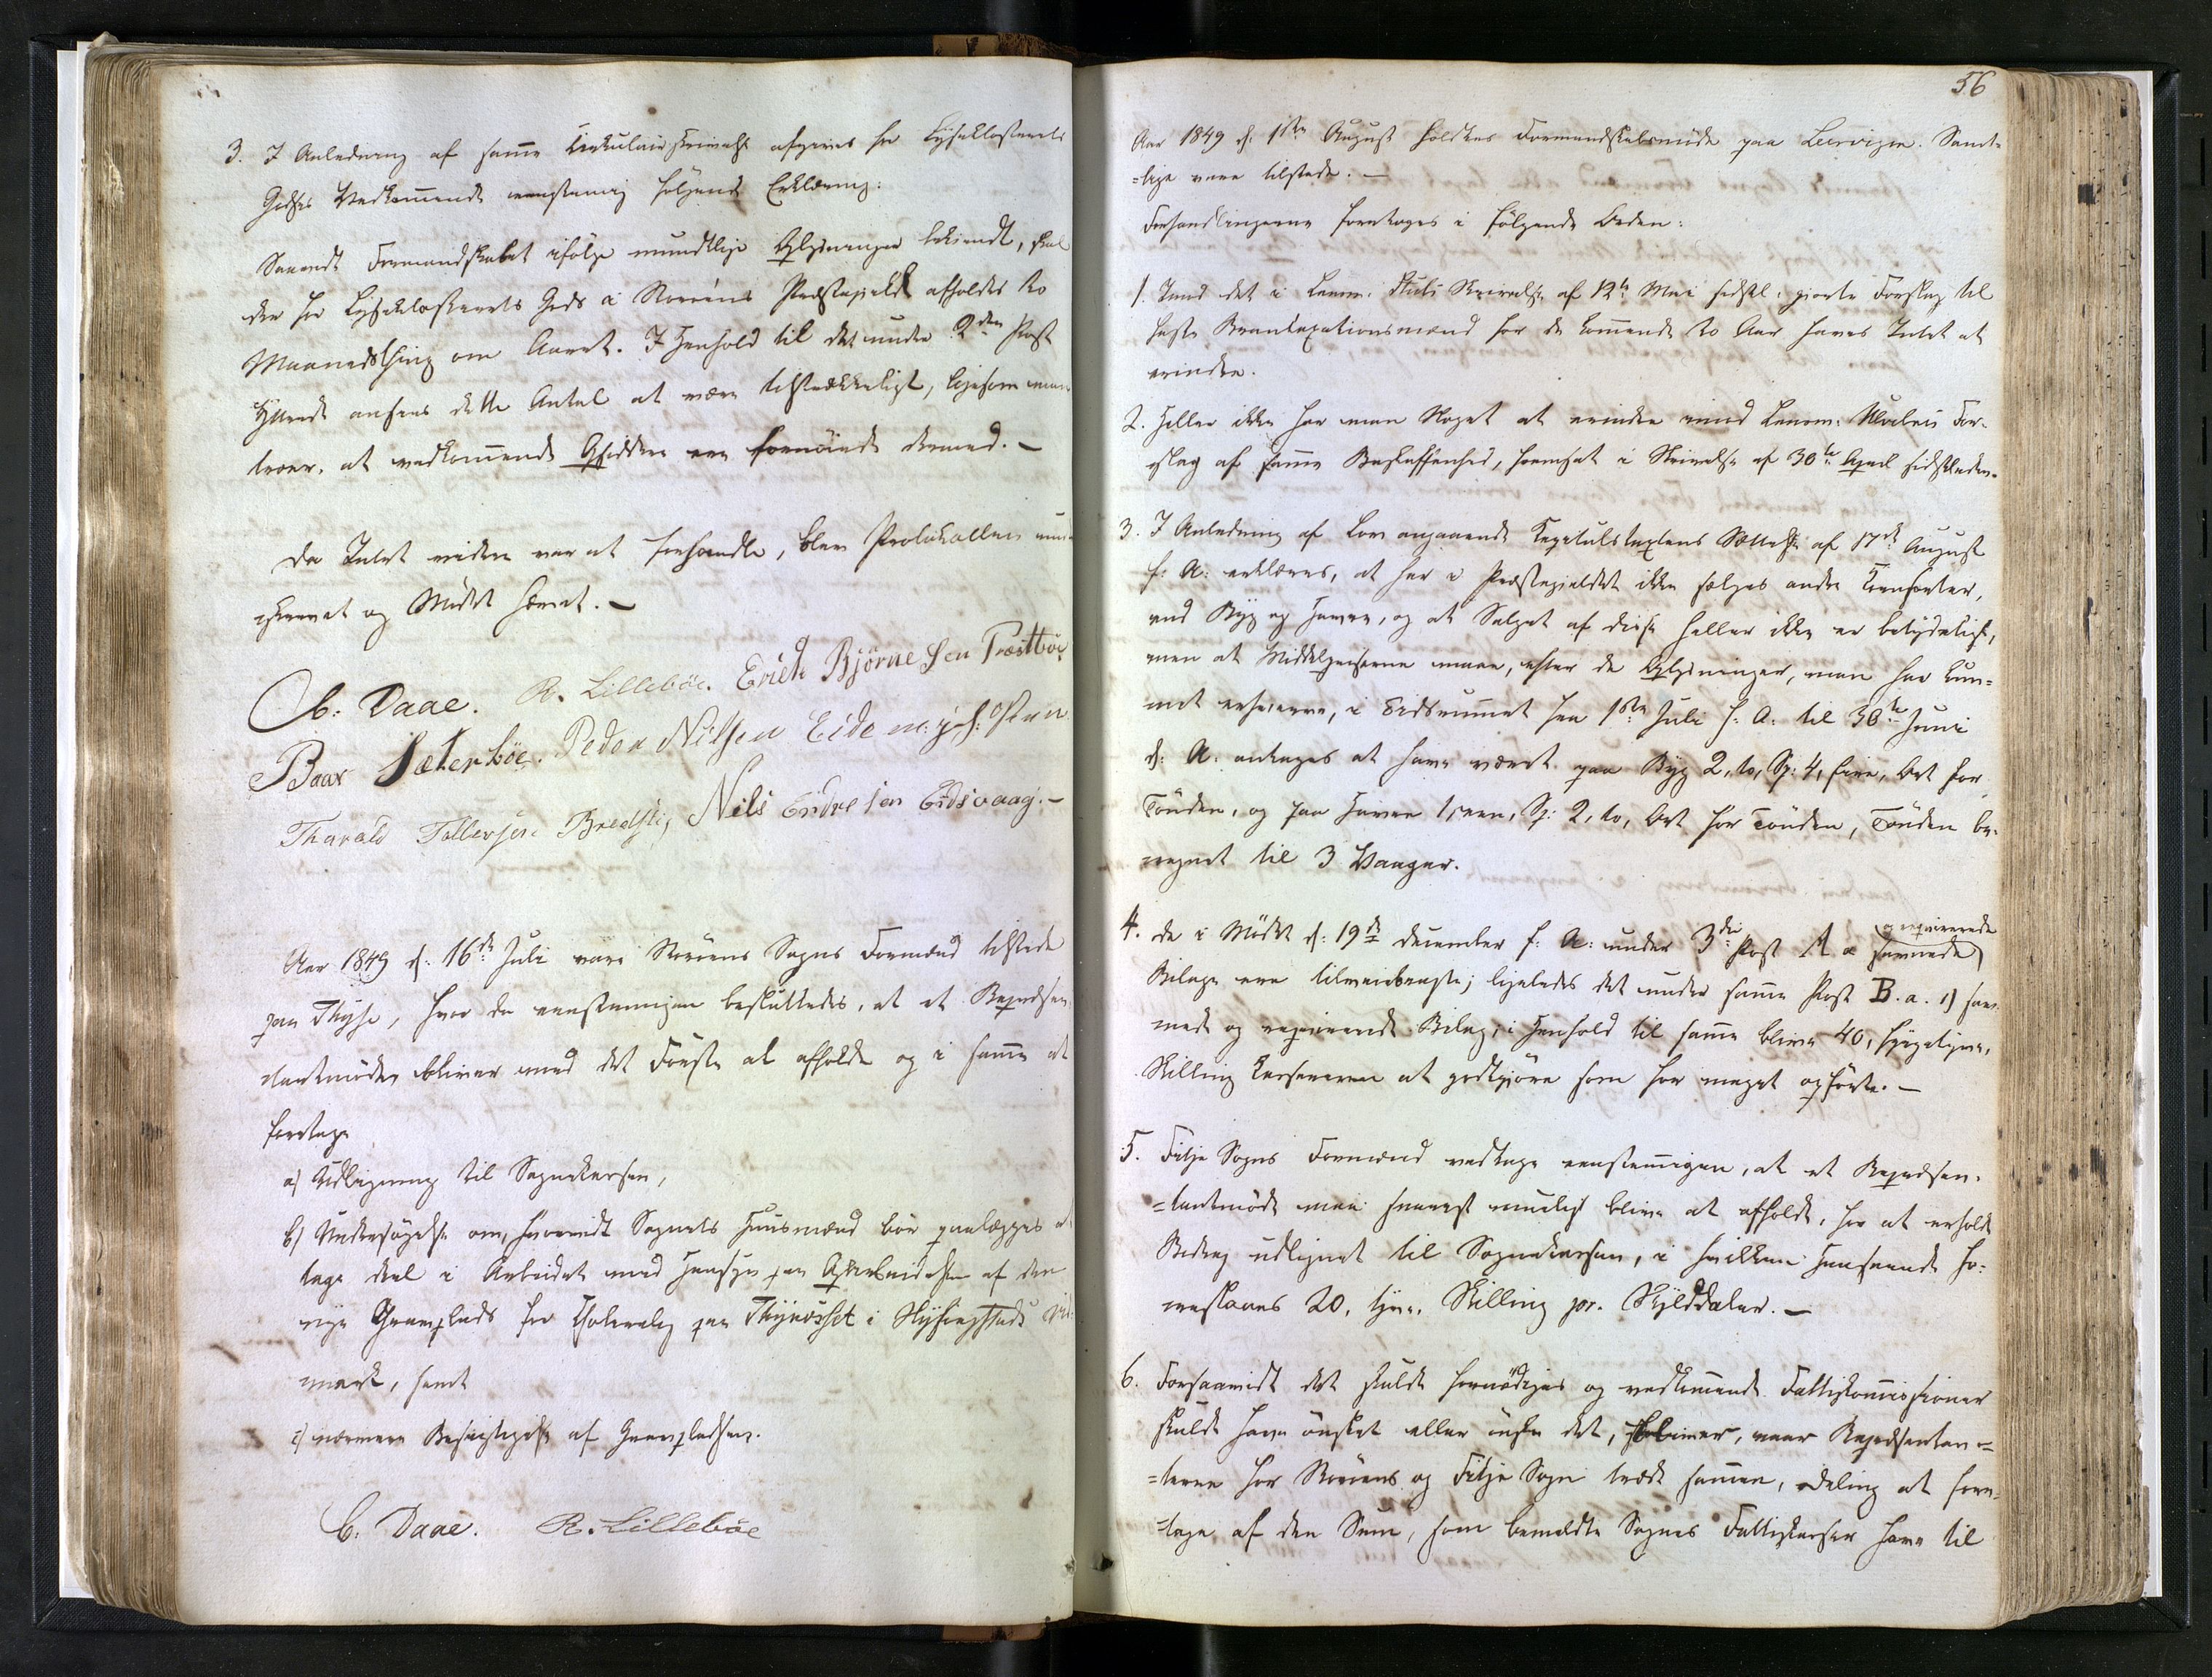 3. I Anledning af samme Cirkulairskrivelse afgives for Lyseklosterets
Godses Vedkommende eenstemmig følgende Erklæring:
Saavidt Formandskabet ifølge mundtlige Oplysninger bekiendt, skal
der for Lyseklosterets Gods i Storöens Præstegield afholdes to
Maanedsthing om Aaret. I Henhold til det under 2den Post
Yttrede ansees dette Antal at være tilstrækkeligt, ligesom man
troer, at vedkommende Opsiddere ere fornöiede dermed. —
Da Intet videre var at forhandle, blev Protokollen under-
skrevet og Mödet hævet. —
C. Daae. R. Lilleböe. Erich Björnesen Præstböe
Baar Sæterböe. Peder Nilsen Eide m: p: f: Pen
Tharald Tollevsen Bredsti, Nils Endresen Eidsvaag. —
Aar 1849 d: 16de Juli vare Storöens Sogns Formænd tilstede
paa Thyse, hvor da eenstemmigen besluttedes, at et Repræsen-
tantmöde bliver med det Förste at afholde og i samme at
foretage
a) Udligning til Sognekassen,
b) Undersögelse om, hvorvidt Sognets Huusmænd bör paalægges at
tage deel i Arbeidet med Hensyn paa Oparbeidelsen af den
nye Gravplads for Choleralig paa Thyneset i Hysingstads Ud-
mark, samt
c) nærmere Besigtigelse af Gravpladsen.
C. Daae. R. Lilleböe
56
Aar 1849 d: 1ste August holdtes Formandskabsmöde paa Leervigen. Samt-
=lige vare tilstede. —
Forhandlingerne foretoges i følgende Orden:
1. Imod det i Lensm: Stubs Skrivelse af 12te Mai sidstl: giorte Forslag til
faste Brandtaxationsmænd for de kommende to Aar haves Intet at
erindre.
2. Heller ikke har man Noget at erindre imod Lensm: For-
slag af samme Beskaffenhed, fremsat i Skrivelse af 30te April sidstleden.
3. I Anledning af Lov angaaende Kapitulstaxtens Sættelse af 17de August
f: A: erklæres, at her i Præstegieldet ikke sælges andre Kornsorter,
end Byg og Havre, og at Salget af disse heller ikke er betydeligt,
men at Middelpriserne maae, efter de Oplysninger, man har kun-
net erhverve, i Tidsrummet fra 1ste Juli f: A: til 30te Juni
d: A: antages at have været paa Byg 2, to, Sp: 4, fire, Ort for
Tönden, og paa Havre 1, een, Sp: 2, to, Ort for Tönden, Tönden be-
regnet til 3 Vaager.
4. De i Mödet d: 19de December f: A: under 3die Post A a savnede
og reqvirerede
Bilage ere tilveiebragte; ligeledes det under samme Post B. a. 1) sav-
nede og reqvirerede Bilag; i Henhold til samme blive 40, fyrgetyve,
Skilling Kassereren at godtgiöre som for meget opförte. —
5. Fitje Sogns Formænd vedtage eenstemmigen, at et Repræsen-
=tantmöde maa snarest mueligt blive at afholde, for at erholde
Bidrag udlignet til Sognekassen, i hvilken Henseende fo-
reslaaes 20, tyve, Skilling pr. Skylddaler. —
6. Forsaavidt det skulde fornödiges og vedkommende Fattigkommissioner
skulde have önsket eller önske det, bliver, naar Repræsentan=
=terne for Storöens og Fitje Sogn træde sammen, Deling at fore-
=tage af den Sum, som bemeldte Sognes Fattigkasser have til